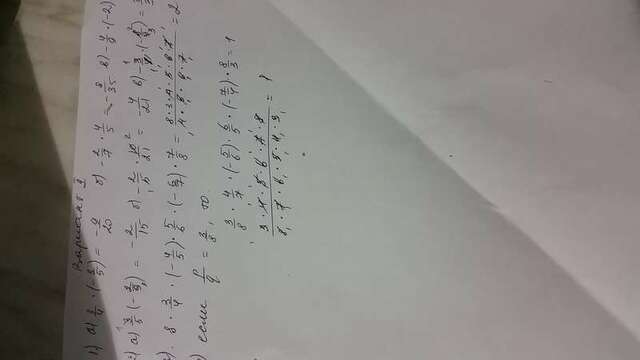 Вариант 9
1) а) 3/4 · (-3/5) = -9/20 б) -2/7 · 4/5 = -8/35 в) -4/9 · (-2)
а) 3/5 (- ) = -2/15 б) -2/5 · 10/21 = -4/21 в)
8 · 3/4 · (-4/5) · 5/6 · (-6/7) · 7/8 = 8·3·4·5·6·7 / 4·5·6·7 = 2
если p/q = 3/8, то
3/8 · 4/7 · (-5/6) · 6/5 · (-7/4) · 8/3 = 1
3·4·5·6·7·8 / 8·7·6·5·4·3 = 1